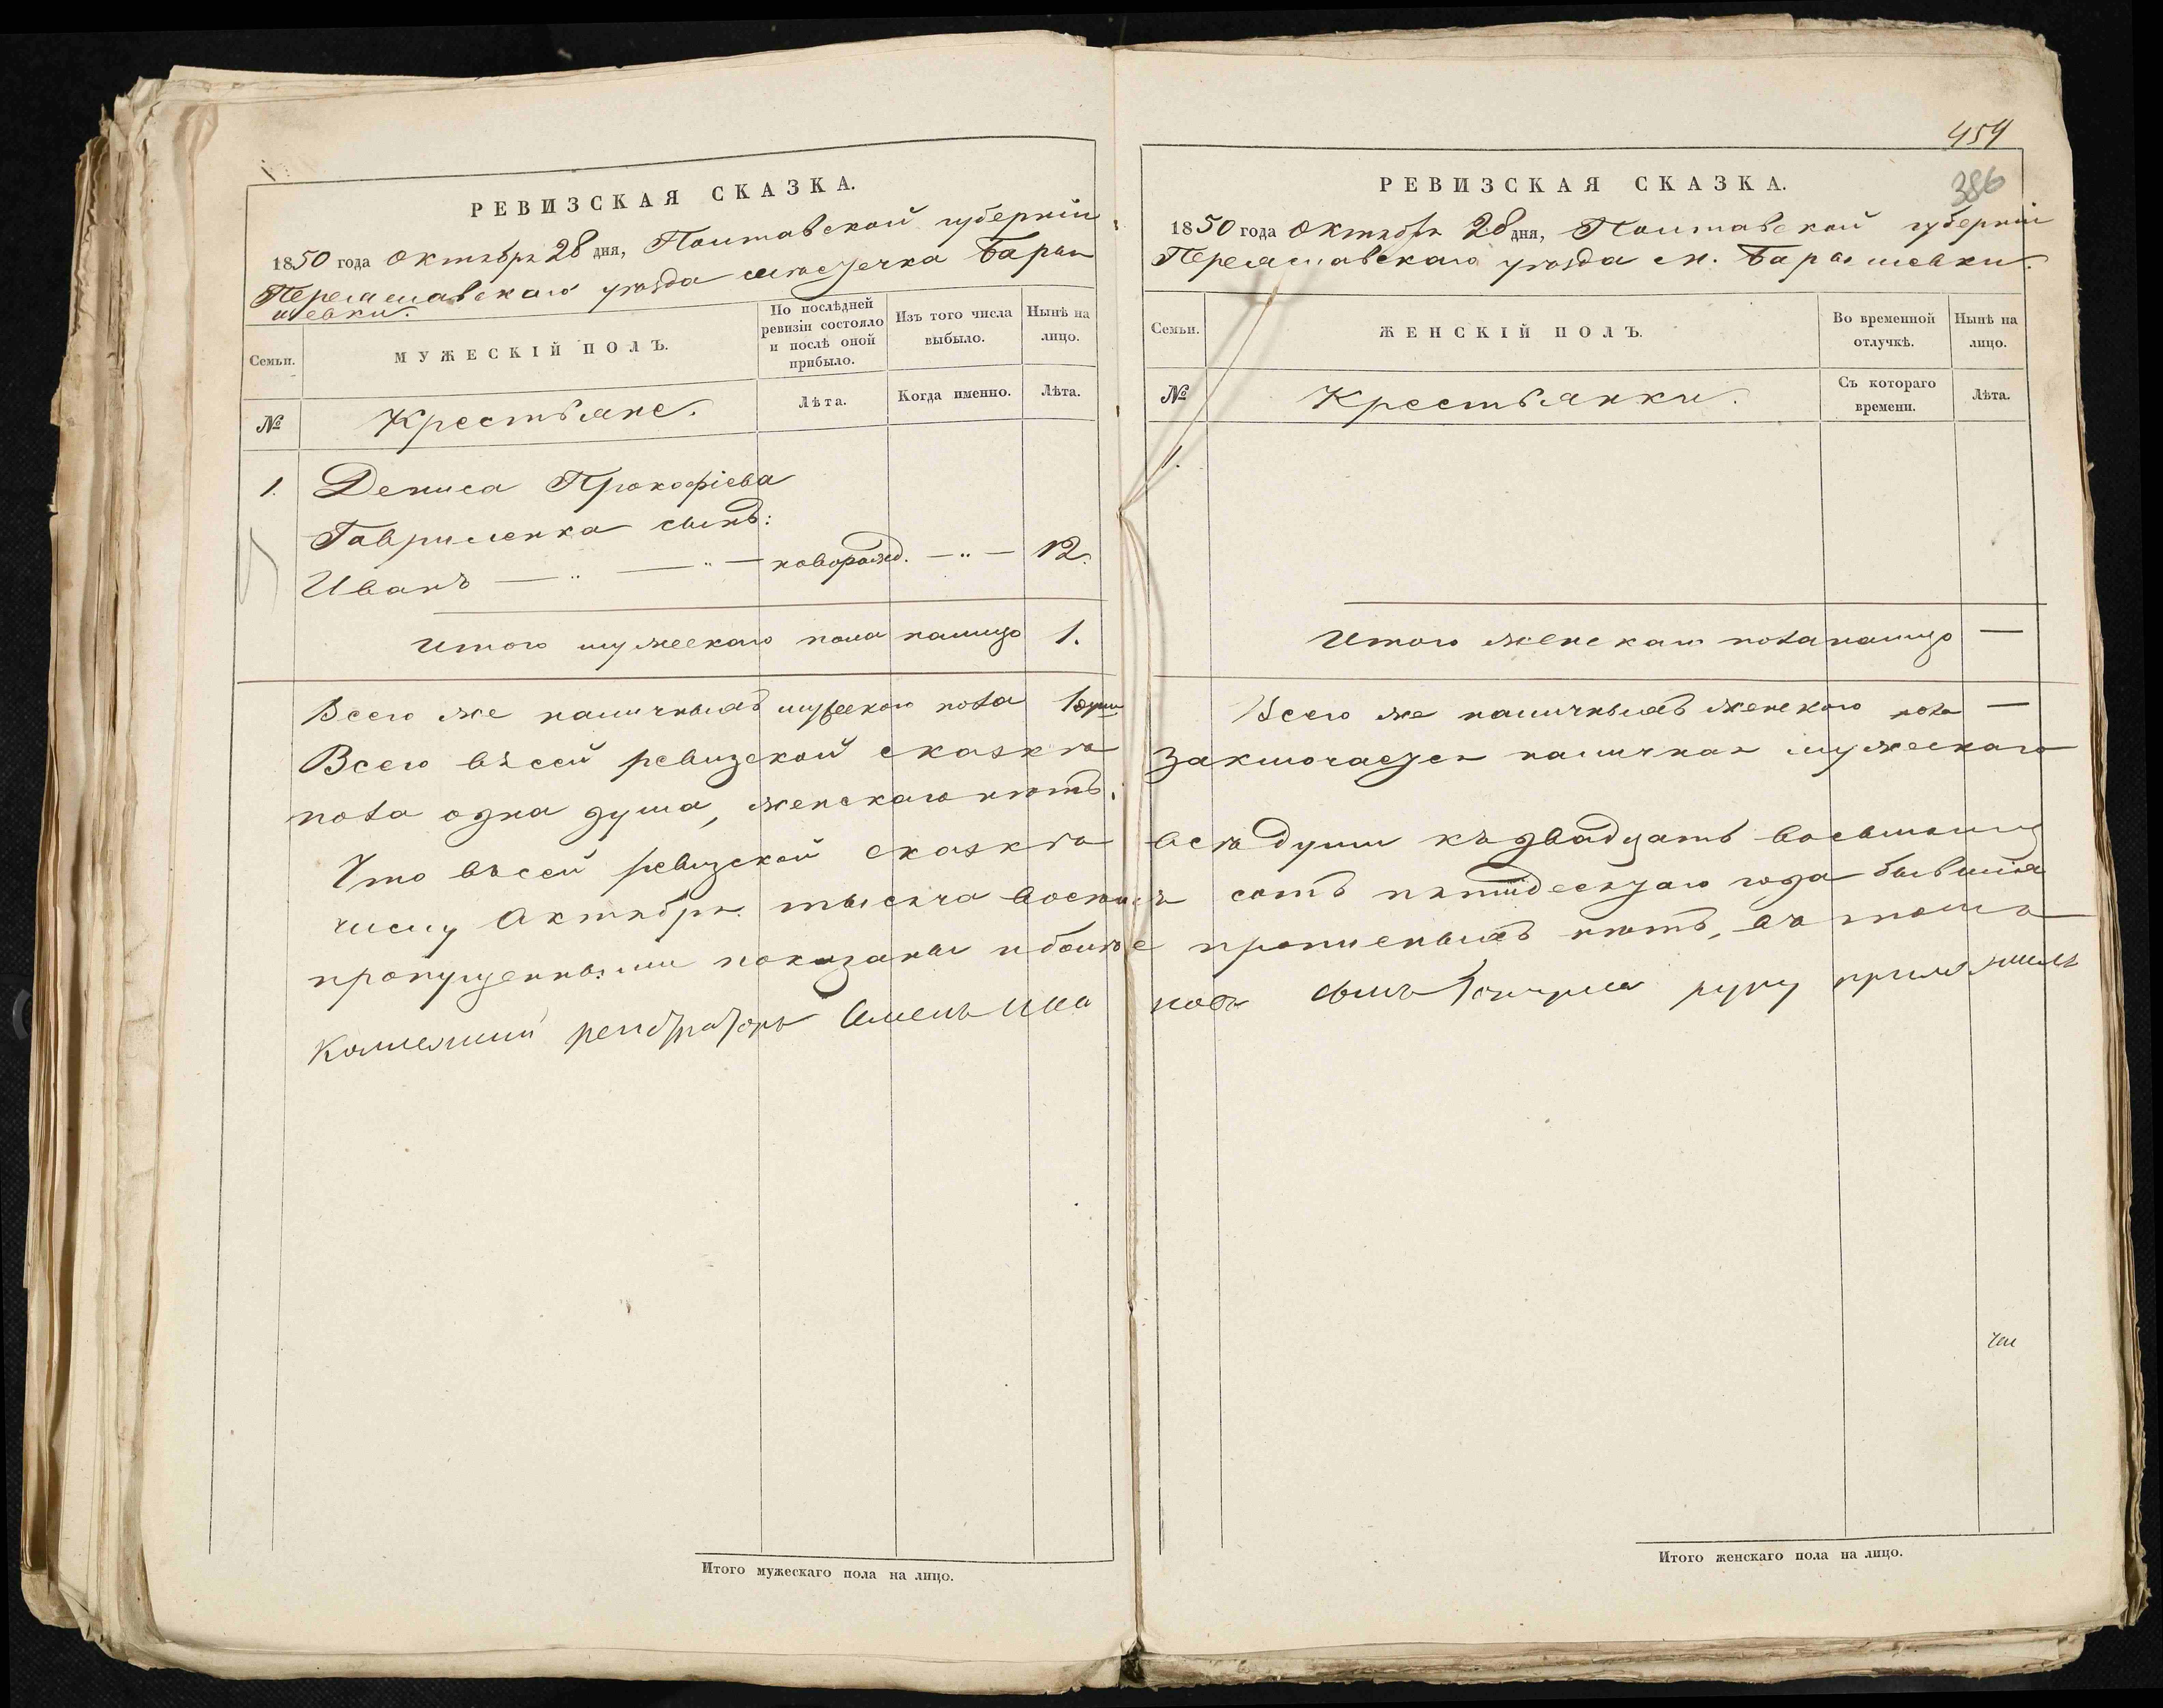 РЕВИЗСКАЯ СКАЗКА.
1850 года Октября 28 дня, Полтавской губерніи
Переяславскаго уѣзда мѣстечка Бары
шевки.
Семьи.
МУЖЕСКІЙ ПОЛЪ.
По послѣдней
ревизіи состояло
и послѣ оной
прибыло.
Изъ того числа
выбыло.
Нынѣ на
лицо.
№
Крестьяне.
Лѣта.
Когда именно.
Лѣта.
1. Дениса Прокофіева
Гавриленка сынъ:
Иванъ — " — " — новорожд. — " — 12.
Итого мужескаго пола налицо 1.
Всего же наличныхъ мужескаго пола 1 души
454
386
РЕВИЗСКАЯ СКАЗКА.
1850 года Октября 28 дня, Полтавской губерніи
Переяславскаго уѣзда м. Барышевки.
Семьи.
ЖЕНСКІЙ ПОЛЪ.
Во временной
отлучкѣ.
Нынѣ на
лицо.
№
Крестьянки.
Съ котораго
времени.
Лѣта.
1.
Итого женскаго пола налицо —
Всего же наличныхъ женскаго пола —
Всего въ сей ревизской сказкѣ заключается наличная мужескаго
пола одна душа, женскаго нѣтъ.
Что въ сей ревизской сказкѣ всѣ души къ двадцать восьмому
числу Октября тысяча восемь сотъ пятидесятаго года бывшія
пропущенными показаны и болѣе прописныхъ нѣтъ, въ томъ
Коллежскій регистраторъ Семенъ Ива новъ сынъ руку приложилъ
Итого мужескаго пола на лицо.
Итого женскаго пола на лицо.